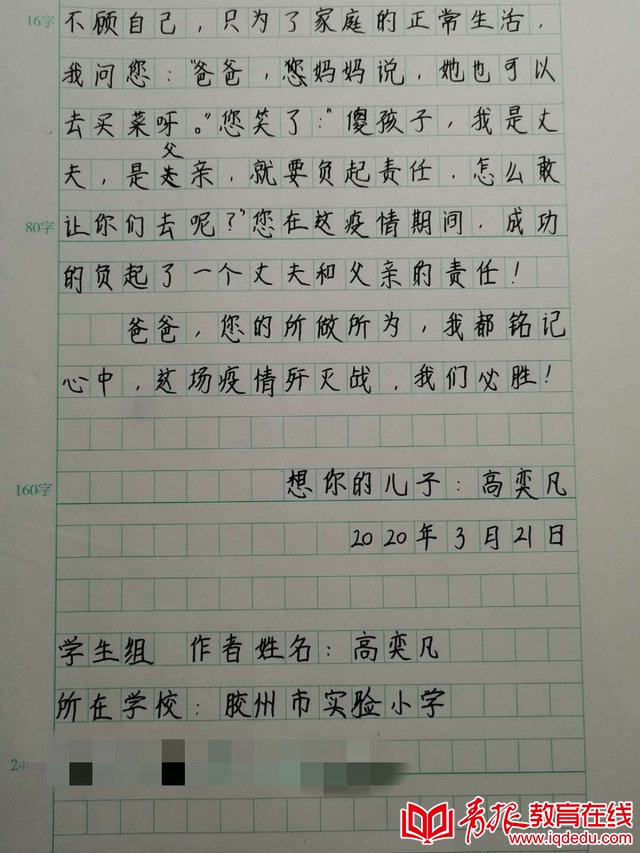 16字
不顾自己，只为了家庭的正常生活．
我问您："爸爸，您妈妈说，她也可以
去买菜呀。"您笑了："傻孩子，我是丈
父
夫，是亲，就要负起责任，怎么敢
80字
让你们去呢？"您在这疫情期间．成功
的负起了一个丈夫和父亲的责任！
爸爸，您的所做所为，我都铭记
心中，这场疫情歼灭战，我们必胜！
160字
想你的儿子：高奕凡
2020年3月21日
学生组 作者姓名：高奕凡
所在学校：胶州市实验小学
24
青报教育在线
www.iqdedu.com